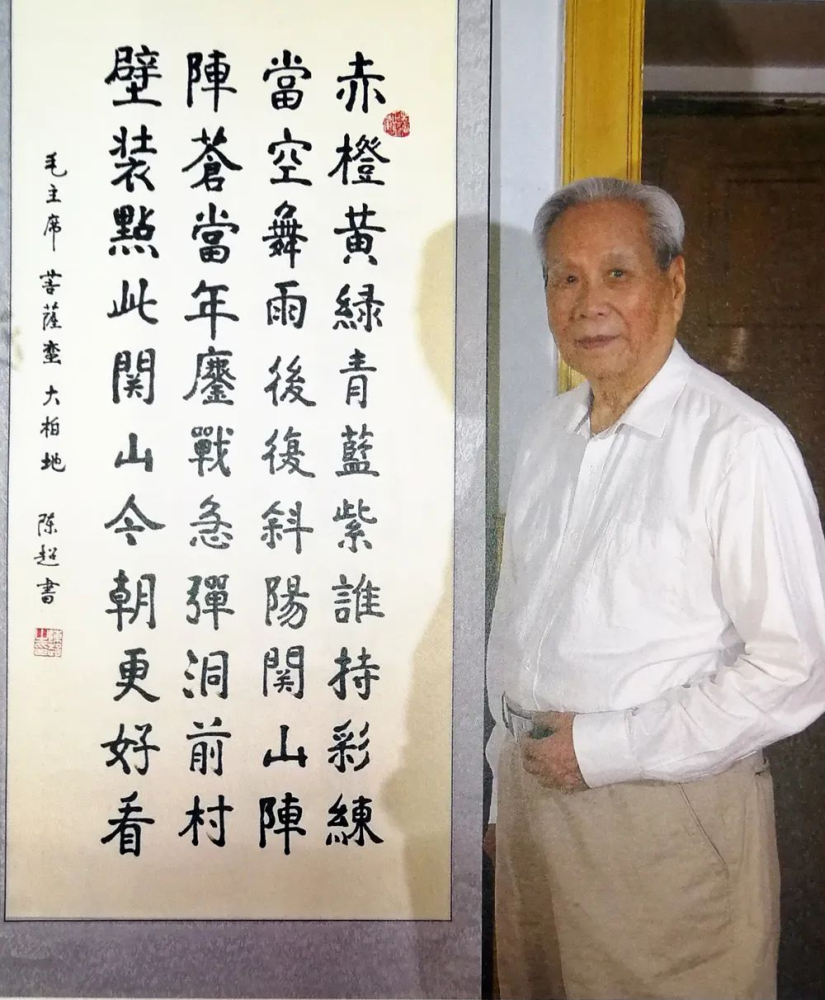 赤橙黄綠青藍紫誰持彩練
當空舞雨後復斜陽関山陣
陣蒼當年鏖戰急彈洞前村
壁装點此関山今朝更好看
毛主席 菩薩蛮 大柏地 陈超書